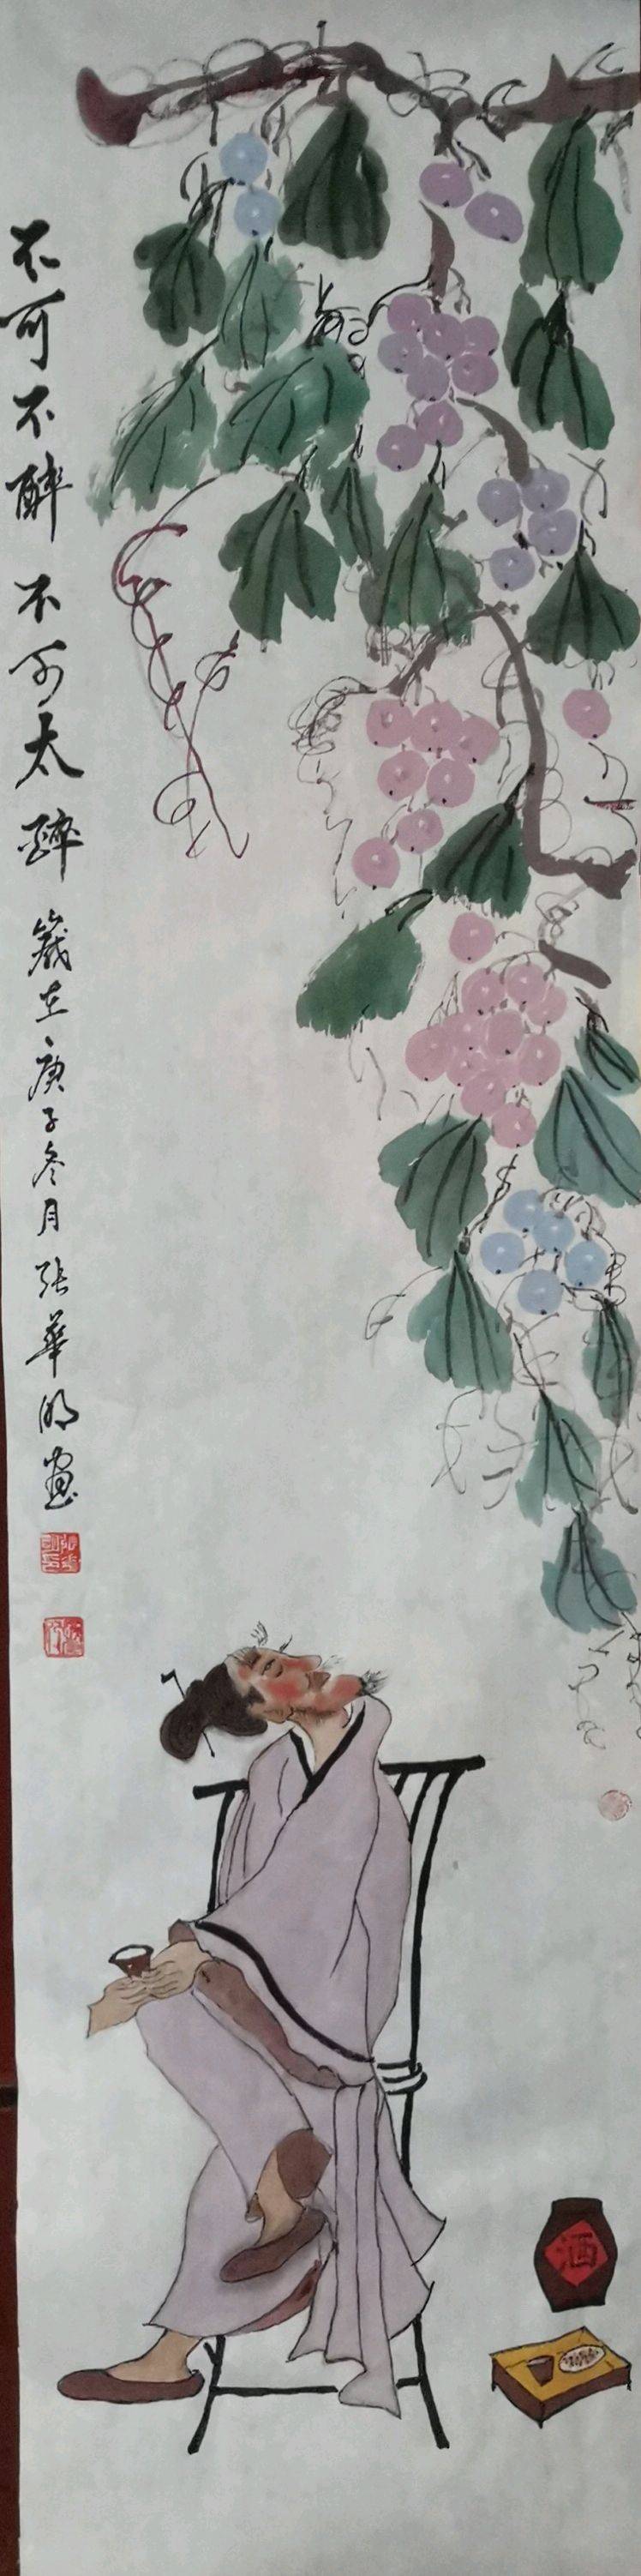 不可不醉不可太醉 岁在庚子冬月张華明画
酒